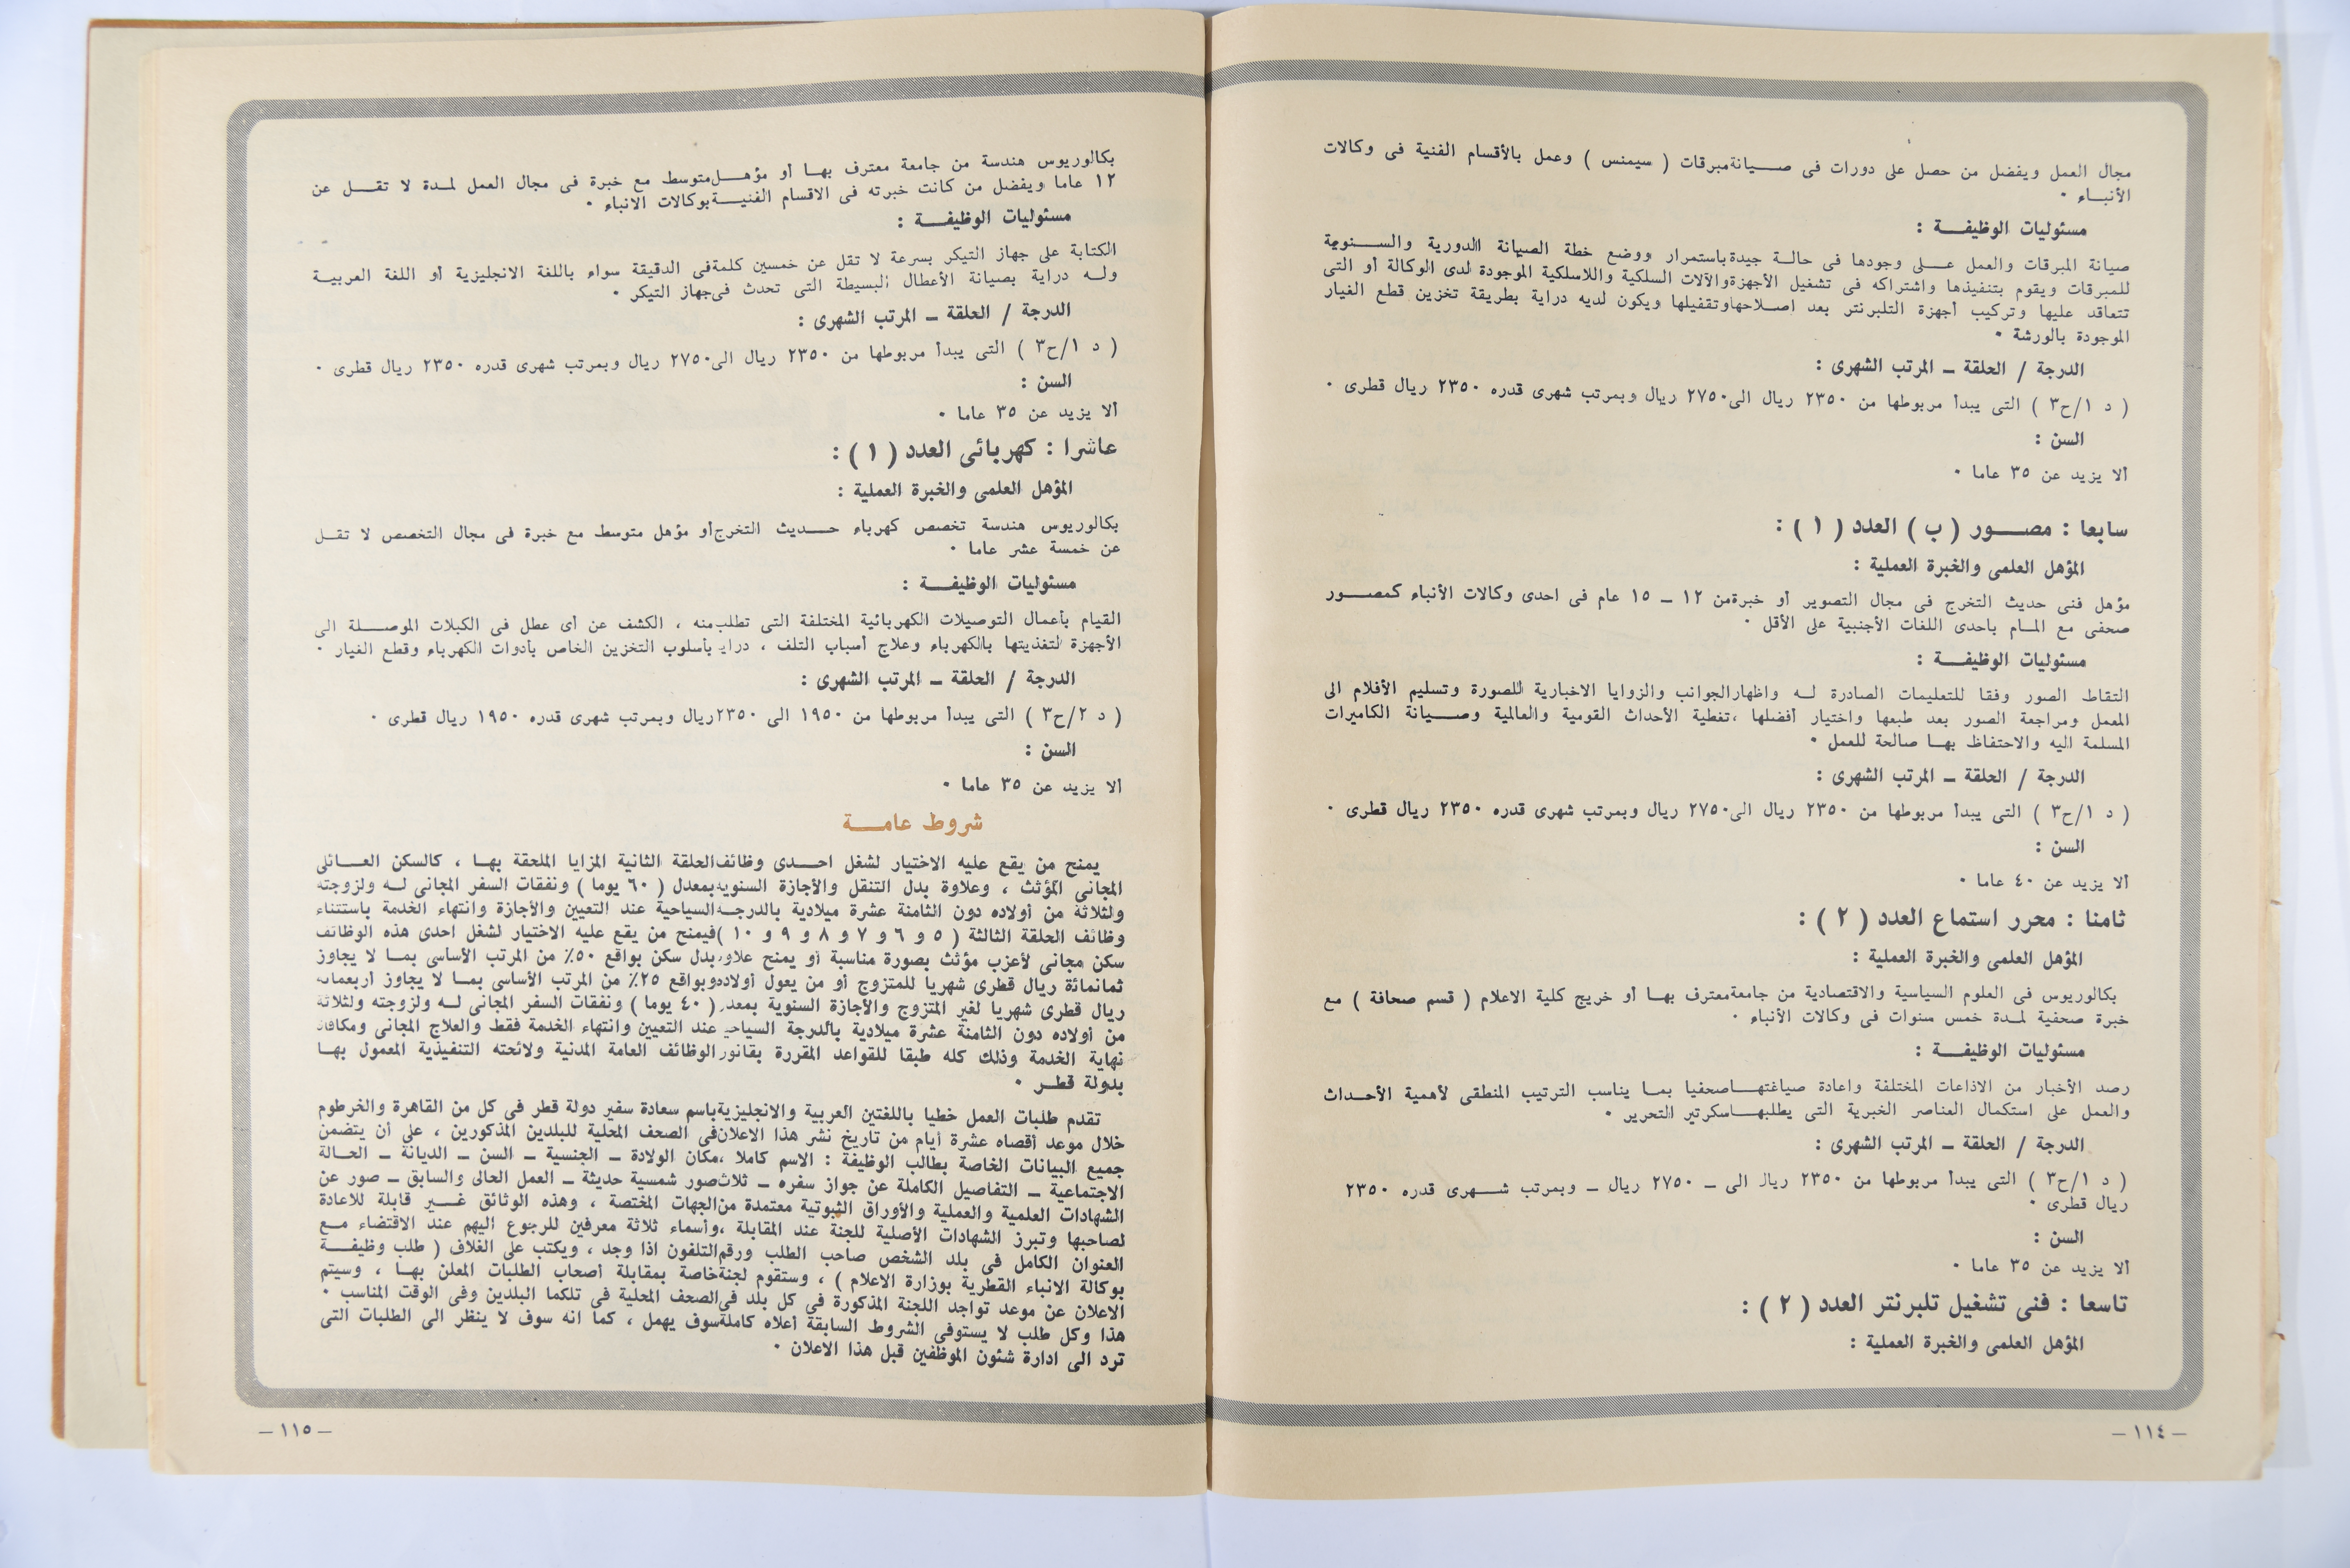 مجال العمل ويفضل من حصل على دورات فى صـــيانة مبرقات ( سيمنس ) وعمل بالأقسام الفنية فى وكالات
الأنبـــاء ٠
مسئوليات الوظيفـــة :
صيانة المبرقات والعمل عـــلى وجودها فى حالـة جيدة باستمرار ووضع خطة الصيانة الدورية والســـنوية
للمبرقات ويقوم بتنفيذها واشتراكه فى تشغيل الأجهزة والآلات السلكية واللاسلكية الموجودة لدى الوكالة أو التى
تتعاقد عليها وتركيب أجهزة التلبرنتر بعد اصـلاحها وتقفيلها ويكون لديه دراية بطريقة تخزين قطع الغيار
الموجودة بالورشة ٠
الدرجة / الحلقة ــ المرتب الشهرى :
( د ١/ح٣ ) التى يبدأ مربوطها من ٢٣٥٠ ريال الى ٢٧٥٠ ريال وبمرتب شهرى قدره ٢٣٥٠ ريال قطرى ٠
السن :
ألا يزيد عن ٣٥ عاما ٠
سابعا : مصـــور ( ب ) العدد ( ١ ) :
المؤهل العلمى والخبرة العملية :
مؤهل فنى حديث التخرج فى مجال التصوير أو خبرة من ١٢ ــ ١٥ عام فى احدى وكالات الأنباء كمصـــور
صحفى مع المـام باحدى اللغات الأجنبية على الأقل ٠
مسئوليات الوظيفـــة :
التقاط الصور وفقا للتعليمات الصادرة لـه واظهار الجوانب والزوايا الاخبارية للصورة وتسليم الأفلام الى
المعمل ومراجعة الصور بعد طبعها واختيار أفضلها ، تغطية الأحداث القومية والعالمية وصـــيانة الكاميرات
المسلمة اليه والاحتفاظ بهـا صالحة للعمل ٠
الدرجة / الحلقة ــ المرتب الشهرى :
( د ١/ح٣ ) التى يبدأ مربوطها من ٢٣٥٠ ريال الى ٢٧٥٠ ريال وبمرتب شهرى قدره ٢٣٥٠ ريال قطرى ٠
السن :
ألا يزيد عن ٤٠ عاما ٠
ثامنا : محرر استماع العدد ( ٢ ) :
المؤهل العلمى والخبرة العملية :
بكالوريوس فى العلوم السياسية والاقتصادية من جامعة معترف بهـا أو خريج كلية الاعلام ( قسم صحافة ) مع
خبرة صحفية لمـدة خمس سنوات فى وكالات الأنباء ٠
مسئوليات الوظيفـــة :
رصد الأخبار من الاذاعات المختلفة واعادة صياغتهـا صحفيا بمـا يناسب الترتيب المنطقى لأهمية الأحـداث
والعمل على استكمال العناصر الخبرية التى يطلبهـا سكرتير التحرير ٠
الدرجة / الحلقة ــ المرتب الشهرى :
( د ١/ح٣ ) التى يبدأ مربوطها من ٢٣٥٠ ريال الى ــ ٢٧٥٠ ريال ــ وبمرتب شـــهرى قدره ٢٣٥٠
ريال قطرى ٠
السن :
ألا يزيد عن ٣٥ عاما ٠
تاسعا : فنى تشغيل تلبرنتر العدد ( ٢ ) :
المؤهل العلمى والخبرة العملية :
– ١١٤ –
بكالوريوس هندسة من جامعة معترف بهـا أو مؤهـل متوسط مع خبرة فى مجال العمل لمـدة لا تقـــل عن
١٢ عاما ويفضل من كانت خبرته فى الاقسام الفنيـــة بوكالات الأنباء ٠
مسئوليات الوظيفـــة :
الكتابة على جهاز التيكر بسرعة لا تقل عن خمسين كلمة فى الدقيقة سواء باللغة الانجليزية أو اللغة العربيـــة
ولـه دراية بصيانة الأعطال البسيطة التى تحدث فى جهاز التيكر ٠
الدرجة / الحلقة ــ المرتب الشهرى :
( د ١/ح٣ ) التى يبدأ مربوطها من ٢٣٥٠ ريال الى ٢٧٥٠ ريال وبمرتب شهرى قدره ٢٣٥٠ ريال قطرى ٠
السن :
ألا يزيد عن ٣٥ عاما ٠
عاشرا : كهربائى العدد ( ١ ) :
المؤهل العلمى والخبرة العملية :
بكالوريوس هندسة تخصص كهرباء حـــديث التخرج أو مؤهل متوسط مع خبرة فى مجال التخصص لا تقـل
عن خمسة عشر عاما ٠
مسئوليات الوظيفـــة :
القيام بأعمال التوصيلات الكهربائية المختلفة التى تطلب منه ، الكشف عن أى عطل فى الكبلات الموصـــلة الى
الأجهزة لتغذيتها بالكهرباء وعلاج أسباب التلف ، دراية بأسلوب التخزين الخاص بأدوات الكهرباء وقطع الغيار ٠
الدرجة / الحلقة ــ المرتب الشهرى :
( د ٢/ح٣ ) التى يبدأ مربوطها من ١٩٥٠ الى ٢٣٥٠ ريال وبمرتب شهرى قدره ١٩٥٠ ريال قطرى ٠
السن :
ألا يزيد عن ٣٥ عاما ٠
شروط عامـــة
يمنح من يقع عليه الاختيار لشغل احـــدى وظائف الحلقة الثانية المزايا الملحقة بهـا ، كالسكن العـــائلى
المجانى المؤثث ، وعلاوة بدل التنقل والأجازة السنوية بمعدل ( ٦٠ يوما ) ونفقات السفر المجانى لـه ولزوجته
ولثلاثة من أولاده دون الثامنة عشرة ميلادية بالدرجـة السياحية عند التعيين والأجازة وانتهاء الخدمة باستثناء
وظائف الحلقة الثالثة ( ٥ و ٦ و ٧ و ٨ و ٩ و ١٠ ) فيمنح من يقع عليه الاختيار لشغل احدى هذه الوظائف
سكن مجانى لأعزب مؤثث بصورة مناسبة أو يمنح علاوة بدل سكن بواقع ٥٠٪ من المرتب الأساسى بمـا لا يجاوز
ثمانمائة ريال قطرى شهريا للمتزوج أو من يعول أولاده وبواقع ٢٥٪ من المرتب الأساسى بمـا لا يجاوز أربعمائة
ريال قطرى شهريا لغير المتزوج والأجازة السنوية بمعدل ( ٤٠ يوما ) ونفقات السفر المجانى لـه ولزوجته ولثلاثة
من أولاده دون الثامنة عشرة ميلادية بالدرجة السياحية عند التعيين وانتهاء الخدمة فقط والعلاج المجانى ومكافأة
نهاية الخدمة وذلك كله طبقا للقواعد المقررة بقانون الوظائف العامة المدنية ولائحته التنفيذية المعمول بهـا
بدولة قطـر ٠
تقدم طلبات العمل خطيا باللغتين العربية والانجليزية باسم سعادة سفير دولة قطر فى كل من القاهرة والخرطوم
خلال موعد أقصاه عشرة أيام من تاريخ نشر هذا الاعلان فى الصحف المحلية للبلدين المذكورين ، على أن يتضمن
جميع البيانات الخاصة بطالب الوظيفة : الاسم كاملا ، مكان الولادة ــ الجنسية ــ السن ــ الديانة ــ الحـالة
الاجتماعية ــ التفاصيل الكاملة عن جواز سفره ــ ثلاث صور شمسية حديثة ــ العمل الحالى والسابق ــ صور عن
الشهادات العلمية والعملية والأوراق الثبوتية معتمدة من الجهات المختصة ، وهذه الوثائق غـــير قابلة للاعادة
لصاحبها وتبرز الشهادات الأصلية للجنة عند المقابلة ، وأسماء ثلاثة معرفين للرجوع اليهم عند الاقتضاء مـــع
العنوان الكامل فى بلد الشخص صاحب الطلب ورقم التلفون اذا وجد ، ويكتب على الغلاف ( طلب وظيفـــة
بوكالة الانباء القطرية بوزارة الاعلام ) ، وستقوم لجنة خاصة بمقابلة أصحاب الطلبات المعلن بهـا ، وسيتم
الاعلان عن موعد تواجد اللجنة المذكورة فى كل بلد فى الصحف المحلية فى تلكما البلدين وفى الوقت المناسب ٠
هذا وكل طلب لا يستوفى الشروط السابقة أعلاه كاملة سوف يهمل ، كما انه سوف لا ينظر الى الطلبات التى
ترد الى ادارة شئون الموظفين قبل هذا الاعلان ٠
– ١١٥ –